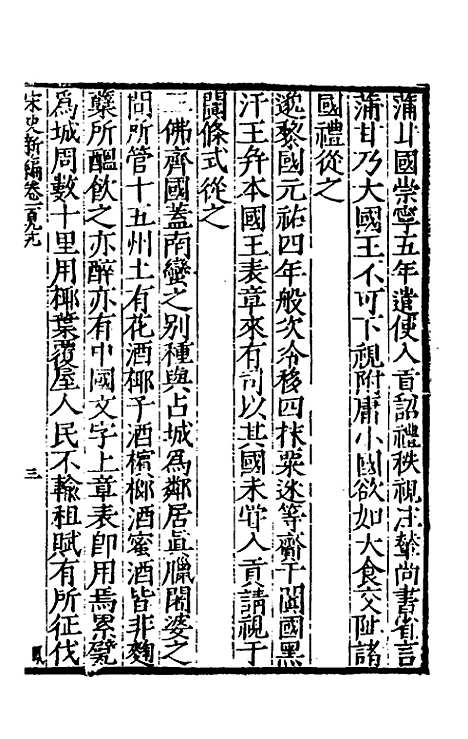 蒲甘國崇寧五年遣使入貢詔禮秩視注輦尚書省言
蒲甘乃大國王不可下視附庸小國欲如大食交阯諸
國禮從之
邈黎國元祐四年般次冷移四抹粟迷等齎于闐國黑
汗王并本國王表章來有司以其國未嘗入貢請視于
闐條式從之
三佛齊國蓋南蠻之别種與占城爲鄰居眞臘闍婆之
間所管十五州土有花酒椰子酒檳榔酒蜜酒皆非麴
櫱所醖飲之亦醉亦有中國文字上章表即用焉累甓
爲城周數十里用椰葉覆屋人民不輸租賦有所征伐
宋史新編卷一百九九
三